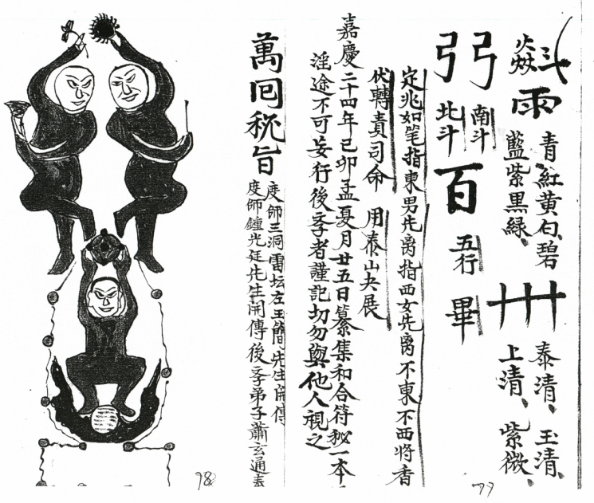 雨
青、紅黃白、碧
藍紫黑綠、
卌
泰清、玉清、
上清、紫微、
弓弓
南斗
北斗
百
五行
畢
定兆如笔指東男先离指西女先离不東不西將香
伏轉責司命 用泰山夫展
嘉慶二十四年己卯孟夏月廿五日纂集和合符秘一本
淫途不可妄行後斈者謹記切勿與他人視之
萬回秘旨
度師三洞雷坛左玉簡先生開傳
度師鐘光廷先生開傳後斈弟子蕭玄通
98